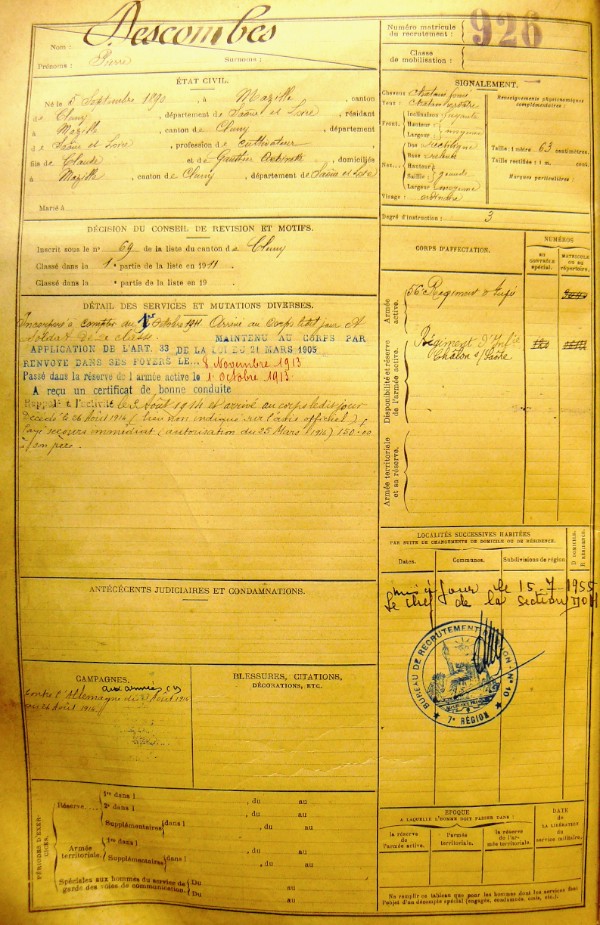 Nom : Descombes
Prénoms : Pierre Surnoms :
Numéro matricule du recrutement : 926
Classe de mobilisation :
ÉTAT CIVIL.
Né le 5 Septembre 1890, à Mazille, canton
de Cluny, département de Saône et Loire, résidant
à Mazille, canton de Cluny, département
de Saône et Loire, profession de cultivateur
fils de Claude et de Gauthier, domiciliés
à Mazille, canton de Cluny, département de Saône et Loire
Marié à
SIGNALEMENT.
Cheveux
Yeux :
Front : Inclinaison
Hauteur
Largeur moyenne
Nez : Dos
Base
Hauteur
Saillie grande
Largeur moyenne
Visage :
Renseignements physionomiques complémentaires :
Taille : 1 mètre 63 centimètres.
Taille rectifiée : 1 m. cent.
Marques particulières :
Degré d'instruction : 3
DÉCISION DU CONSEIL DE REVISION ET MOTIFS.
Inscrit sous le n° 69 de la liste du canton de Cluny
Classé dans la 1e partie de la liste en 1911.
Classé dans la partie de la liste en 19
CORPS D'AFFECTATION.
NUMÉROS
AU CONTRÔLE spécial.
MATRICULE OU AU répertoire.
Armée active.
56e Régiment d'Inf
Disponibilité et réserve de l'armée active.
Régiment d'Infie
Châlon s/ Saône
Armée territoriale et sa réserve.
DÉTAIL DES SERVICES ET MUTATIONS DIVERSES.
Incorporé à compter du 1er Octobre 1911 Arrivé au corps le dit jour et
soldat de 2e classe MAINTENU AU CORPS PAR
APPLICATION DE L'ART. 33 DE LA LOI DU 21 MARS 1905
RENVOYÉ DANS SES FOYERS LE 8 Novembre 1913
Passé dans la réserve de l'armée active le 1 Octobre 1913
A reçu un certificat de bonne conduite
Rappelé à l'activité le 3 Août 1914 et arrivé au corps le dit jour
Décédé le 26 Août 1914 (lieu non indiqué sur l'avis officiel)
secours immédiat (autorisation du 25 Mars 1916) 150.00
LOCALITÉS SUCCESSIVES HABITÉES
PAR SUITE DE CHANGEMENTS DE DOMICILE OU DE RÉSIDENCE.
Dates. Communes. Subdivisions de région.
D DOMICILE.
R RÉSIDENCE.
mis à jour le 15.7.1955
Le chef de la section
BUREAU DE RECRUTEMENT N° 10
7e RÉGION
ANTÉCÉDENTS JUDICIAIRES ET CONDAMNATIONS.
CAMPAGNES.
aux armées
Contre l'Allemagne du 3 Août 1914
au 26 Août 1914
BLESSURES, CITATIONS,
DÉCORATIONS, ETC.
PÉRIODES D'EXERCICES.
Réserve
1re dans l , du au
2e dans l , du au
Supplémentaires dans l , du au
, du au
Armée territoriale.
1re dans l , du au
Supplémentaires dans l , du au
, du au
Spéciales aux hommes du service de garde des voies de communication.
Du au
Du au
ÉPOQUE
A LAQUELLE L'HOMME DOIT PASSER DANS :
la réserve de l'armée active.
l'armée territoriale.
la réserve de l'armée territoriale.
DATE
DE LA LIBÉRATION
du service militaire.
Ne remplir ce tableau que pour les hommes dont les services font l'objet d'un décompte spécial (engagés, condamnés, omis, etc.).